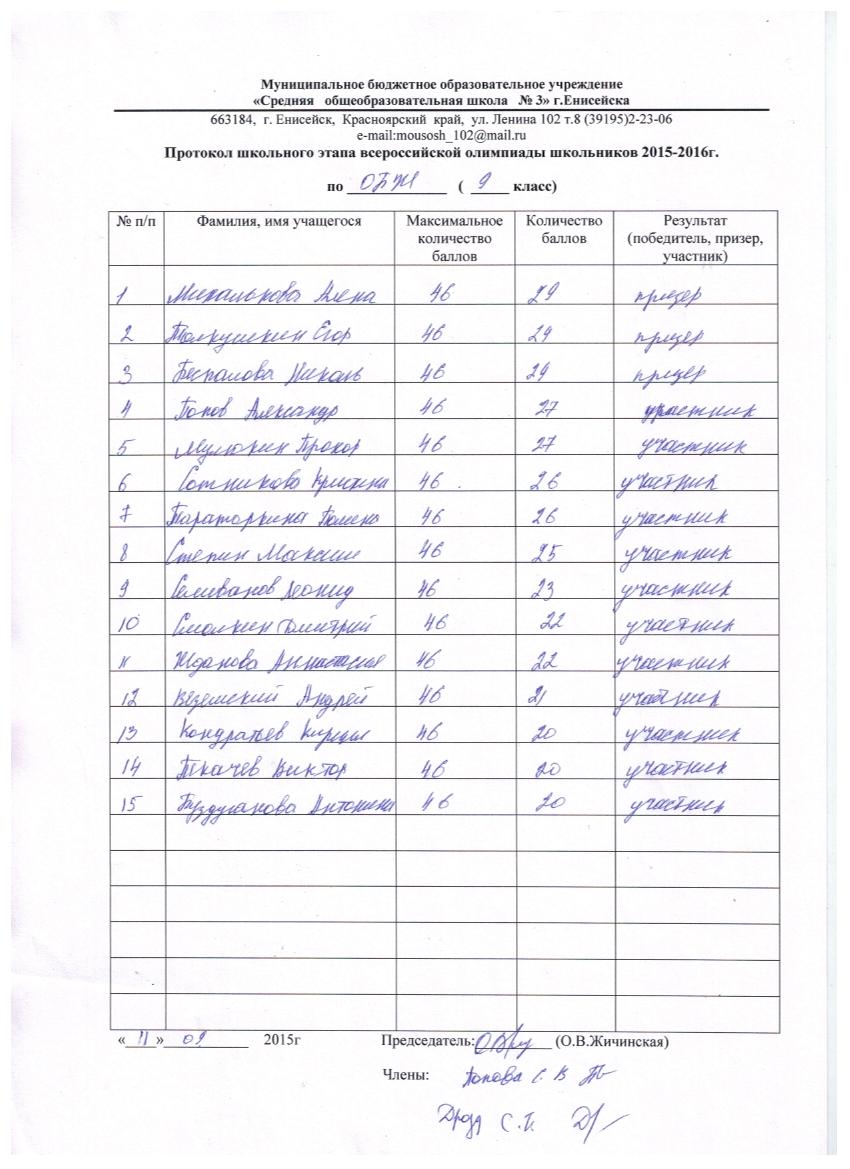 Муниципальное бюджетное образовательное учреждение
«Средняя общеобразовательная школа № 3» г.Енисейска
663184, г. Енисейск, Красноярский край, ул. Ленина 102 т.8 (39195)2-23-06
e-mail:mousosh_102@mail.ru
Протокол школьного этапа всероссийской олимпиады школьников 2015-2016г.
по ОБЖ ( 9 класс)
№ п/п Фамилия, имя учащегося Максимальное количество баллов Количество баллов Результат (победитель, призер, участник)
1 Михалькова Алена 46 29 призер
2 Толкушкин Егор 46 29 призер
3 Беспалова Николь 46 29 призер
4 Попов Александр 46 27 участник
5 Мулюкин Прохор 46 27 участник
6 Сотникова Кристина 46 26 участник
7 Параторкина Полина 46 26 участник
8 Степин Максим 46 25 участник
9 Селиванов Леонид 46 23 участник
10 Смолкин Дмитрий 46 22 участник
11 Жданова Анастасия 46 22 участник
12 Вяземский Андрей 46 21 участник
13 Кондратьев Кирилл 46 20 участник
14 Ткачев Виктор 46 20 участник
15 Буздуганова Антонина 46 20 участник
« 11 » 09 2015г Председатель: (О.В.Жичинская)
Члены: Попова С. В
С.